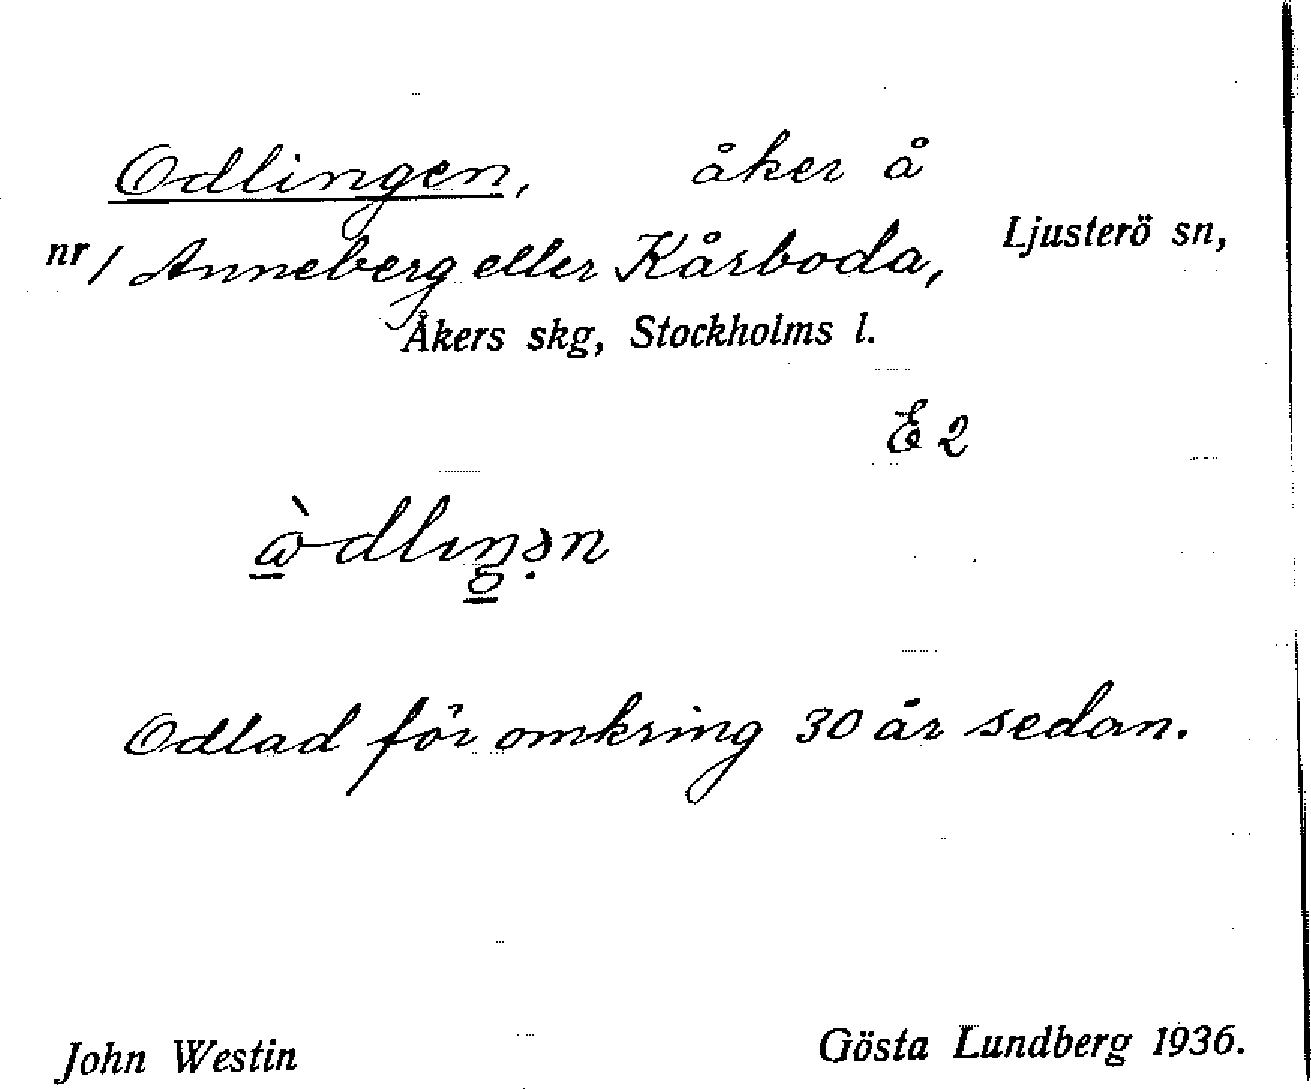 Odlingen, åker å
nr 1 Anneberg eller Kårboda, Ljusterö sn,
Åkers skg, Stockholms l.
E 2
Odlad för omkring 30 år sedan.
John Westin Gösta Lundberg 1936.